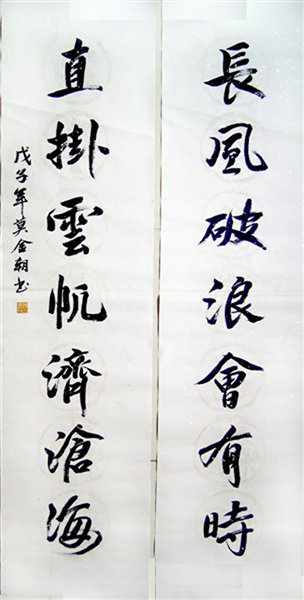 長風破浪會有時
直掛雲帆濟滄海
戊子年莫金朝书